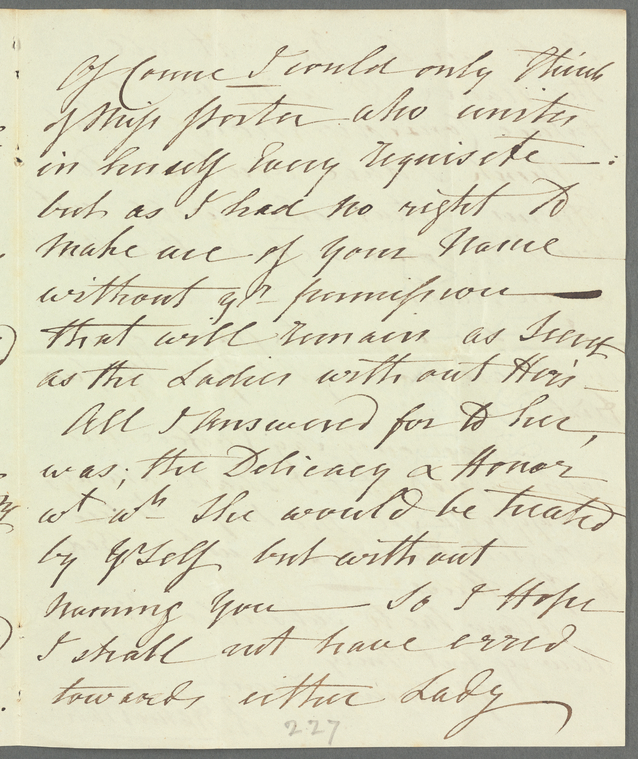 Of Course I could only think
of Miss Porter who unites
in herself Every requisite —:
but as I had no right to
make use of your Name
without yr permission —
that will remain as Secret
as the Ladies without Hers —
All I Answered for to her,
was; the Delicacy & Honor
wt wh She would be treated
by yrself but without
naming you — So I Hope
I shall not have erred
towards either Lady
227